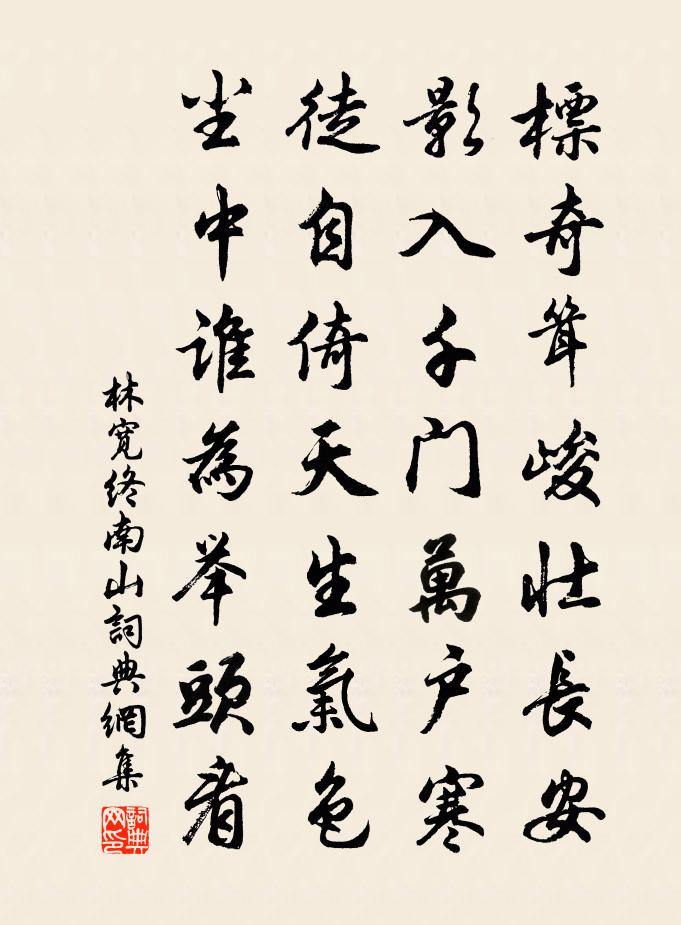 標奇聳峻壯長安
影入千門萬户寒
徒自倚天生氣色
尘中誰為举頭看
林寬終南山詞典網集
詞典网印